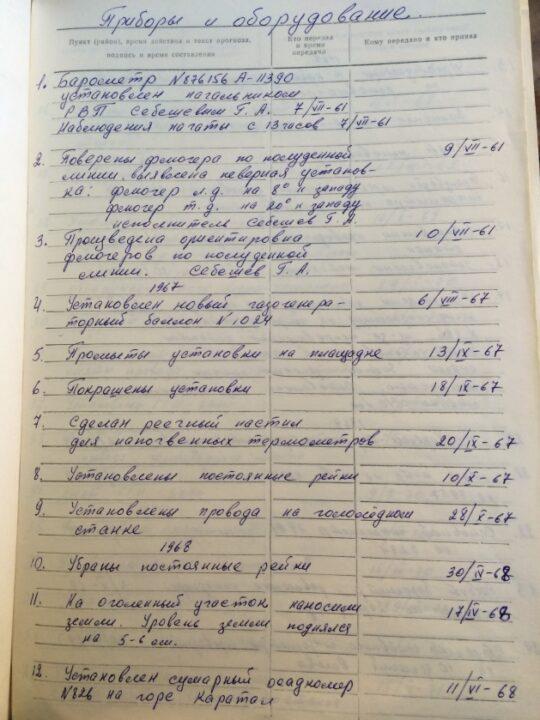 Приборы и оборудование.
Пункт (район), время действия и текст прогноза, подпись и время составления
Кто передал и время передачи
Кому передано и кто принял
1. Барометр №876156 А-11390
установлен начальником
РВП Себешевим Г. А. 7/VII-61
Наблюдения начаты с 13 часов 7/VII-61
2. Поверены флюгера по полуденной 9/VII-61
линии, выявлена неверная установ-
ка: флюгер л.д. на 8° к западу
флюгер т.д. на 20° к западу
исполнитель Себешев Г. А.
3. Произведена ориентировка 10/VII-61
флюгеров по полуденной
линии. Себешев Г. А.
1967
4. Установлен новый газогенера- 6/VIII-67
торный баллон №1024
5. Промыты установки на площадке 13/IX-67
6. Покрашены установки 18/IX-67
7. Сделан реечный настил
для напочвенных термометров 20/IX-67
8. Установлены постоянные рейки 10/X-67
9. Установлены провода на гололедном 28/X-67
станке
1968
10. Убраны постоянные рейки 30/IV-68
11. На оголенный участок наносили 17/IV-68
земли. Уровень земли поднялся
на 5-6 см.
12. Установлен сумарный осадкомер 11/VI-68
№826 на горе Каратал